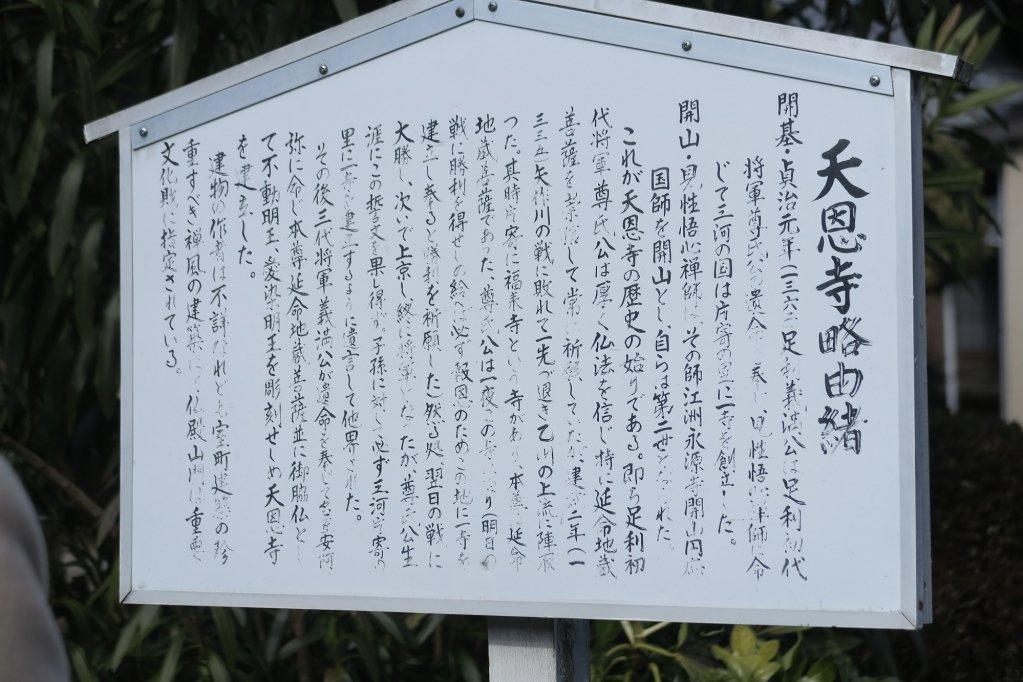 天恩寺略由緒
開基・貞治元年(一三六二足利義満公は足利初代
将軍尊氏公の遺命を奉じ見性悟心禅師に命
じて三河の国は片寄の里に一寺を創立した。
開山・見性悟心禅師はその師江洲永源寺開山円応
国師を開山とし自らは第二世となられた。
これが天恩寺の歴史の始りである。即ち足利初
代将軍尊氏公は厚く仏法を信じ特に延命地蔵
菩薩を崇信して常に祈願していたが、建武二年(一
三三五)矢作川の戦に敗れて一先づ退き乙川の上流に陣取
った。其時片寄に福来寺という寺があり、本尊は延命
地蔵菩薩であった、尊氏公は一夜この寺に り(明日の
戦に勝利を得せしめ給はば必ず報恩のためこの地に一寺を
建立し奉ると勝利を祈願した)然る処、翌日の戦に
大勝し、次いで上京し終に将軍となったが、尊氏公生
涯にこの誓文を果し得ず、子孫に対して必ず三河片寄の
里に一寺を建立するように遺言して他界された。
その後三代将軍義満公が遺命を奉じて仏工安阿
弥に命じ本尊延命地蔵菩薩並に御脇仏とし
て不動明王、愛染明王を彫刻せしめ天恩寺
を建立した。
建物の作者は不詳なれども室町建築の粋
重すべき禅風の建築にて仏殿山門は重要
文化財に指定されている。